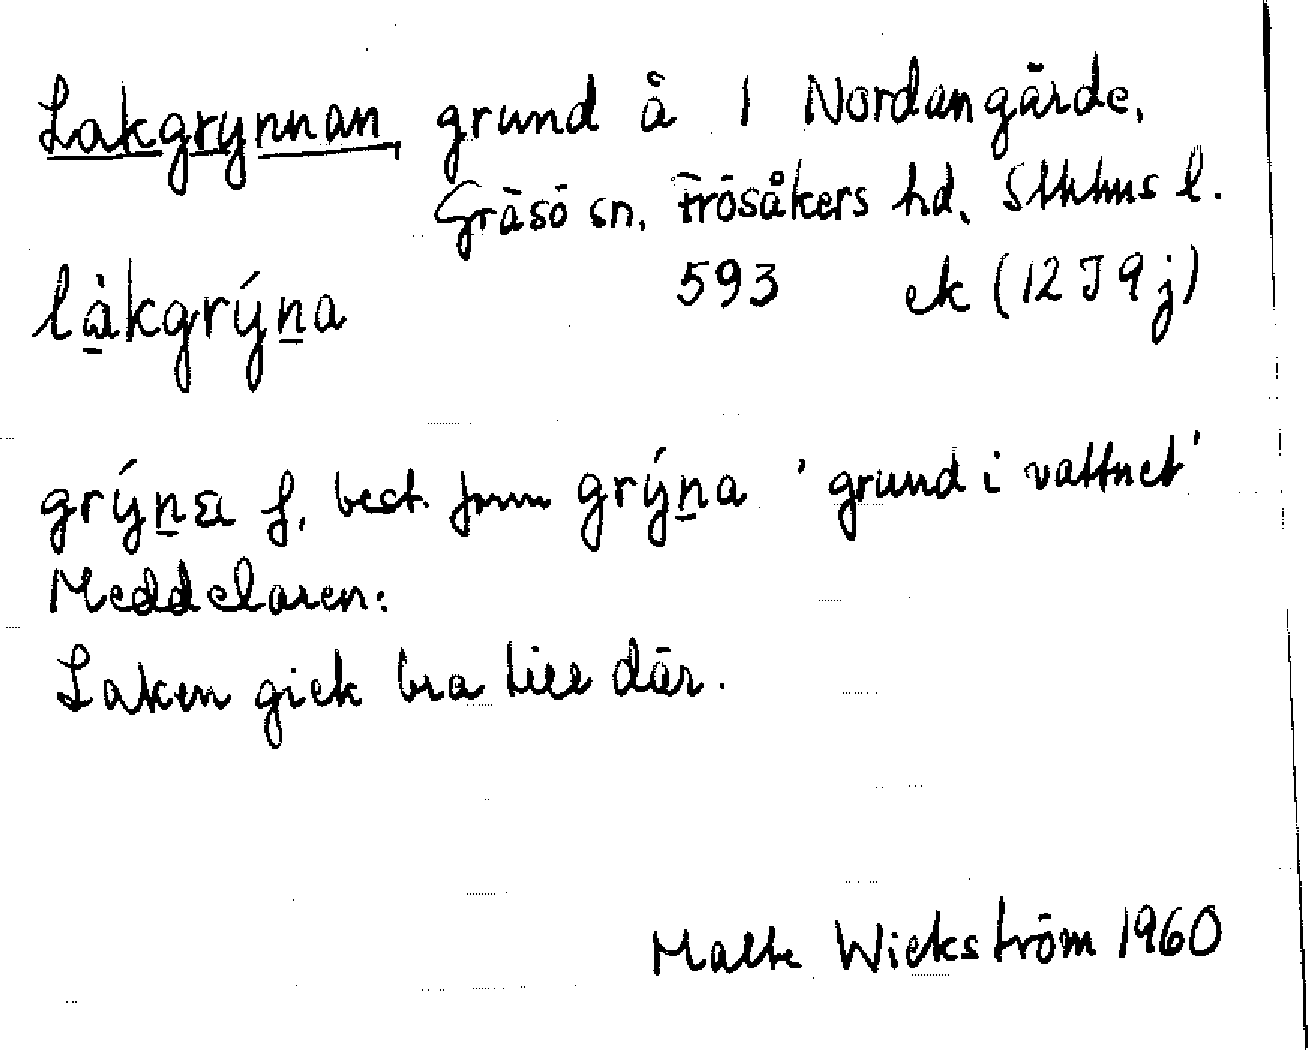 Lakgrynnan, grund å 1 Nordangärde,
Gräsö sn, Frösåkers hd, Sthlms l.
593 ek (12 I 9 j)
lὰ̱kgrýṉa
grýṉa f, best. form grýṉa 'grund i vattnet'
Meddelaren:
Laken gick bra till där.
Malte Wickström 1960